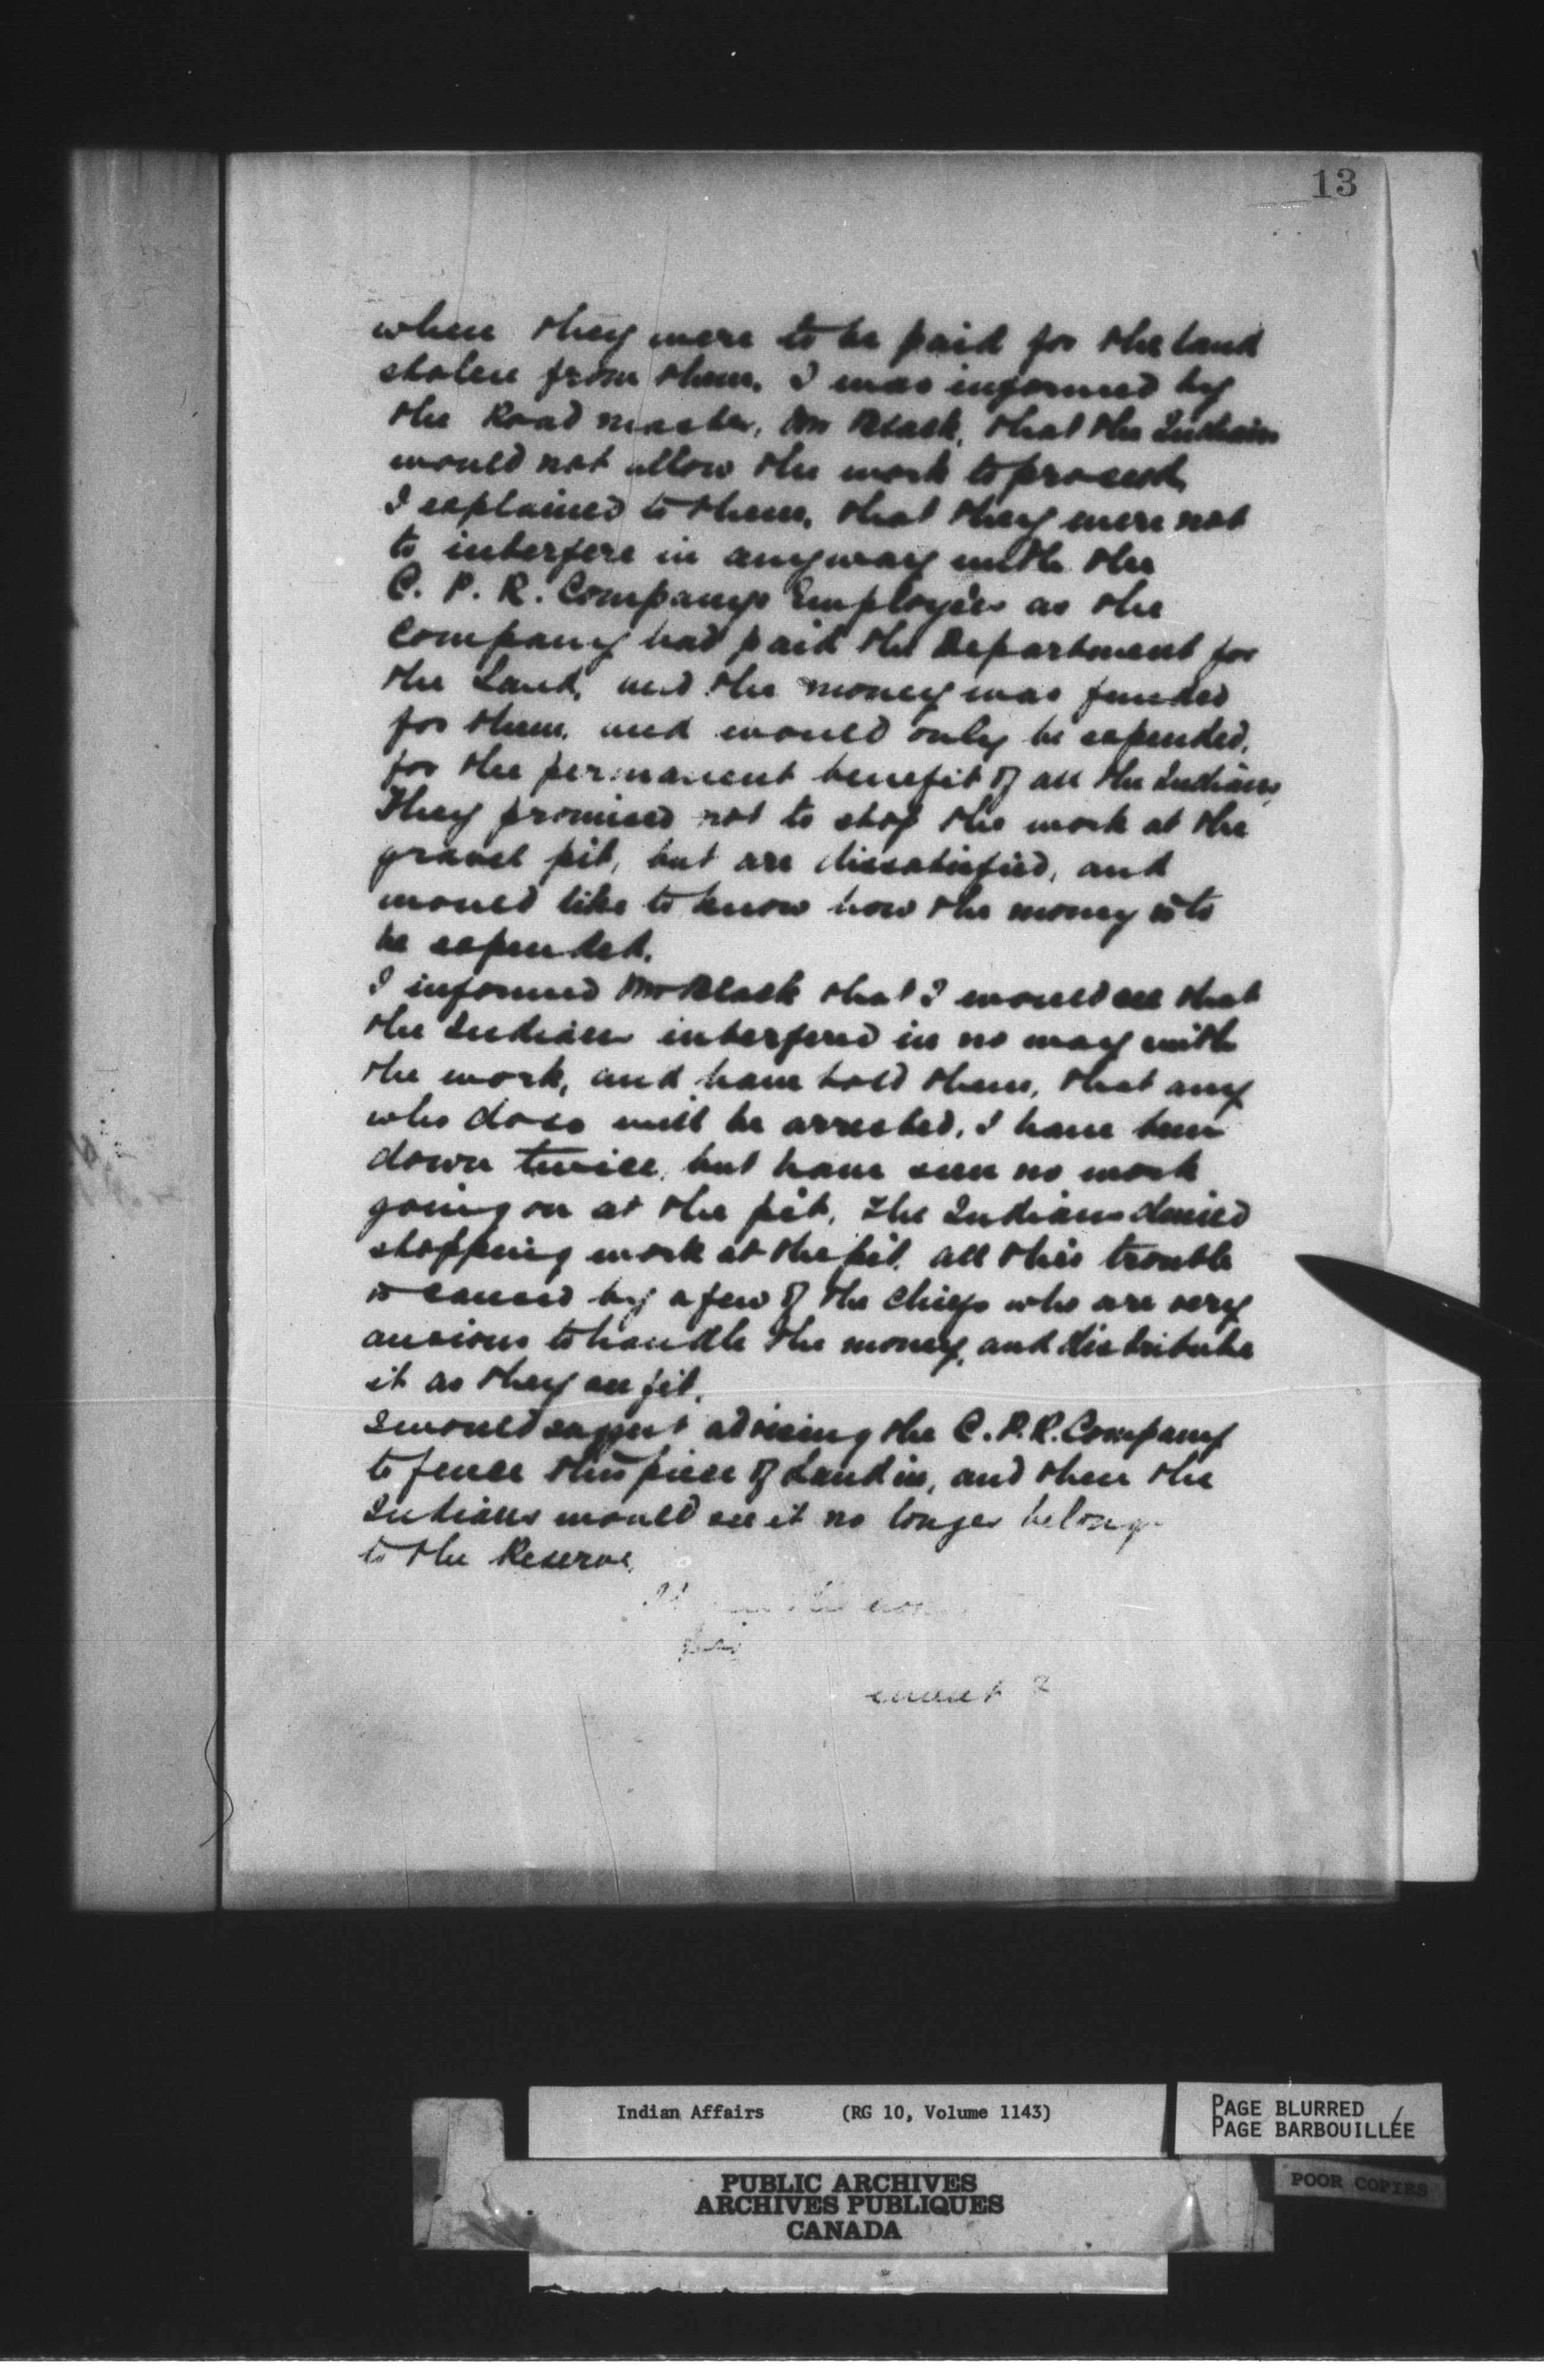 13
when they were to be paid for the land
stolen from them. I was informed by
the Road master, Mr Black, that the Indians
would not allow the work to proceed,
I explained to them, that they were not
to interfere in anyway with the
C. P. R. Companys Employees as the
Company had paid the Department for
the Land, and the money was funded
for them, and would only be expended,
for the permanent benefit of all the Indians,
They promised not to stop the work at the
gravel pit, but are dissatisfied, and
would like to know how the money is to
be expended.
I informed Mr Black that I would see that
the Indians interfered in no way with
the work, and have told them, that any
who does will be arrested. I have been
down twice, but have seen no work
going on at the pit. The Indians denied
stopping work at the pit. all this trouble
is caused by a few of the Chiefs who are very
anxious to handle the money, and distribute
it as they see fit.
I would suggest advising the C.P.R. Company
to fence this piece of Land in, and then the
Indians would see it no longer belongs
to the Reserve.
Indian Affairs (RG 10, Volume 1143)
PAGE BLURRED
PAGE BARBOUILLÉE
PUBLIC ARCHIVES
ARCHIVES PUBLIQUES
CANADA
POOR COPIES